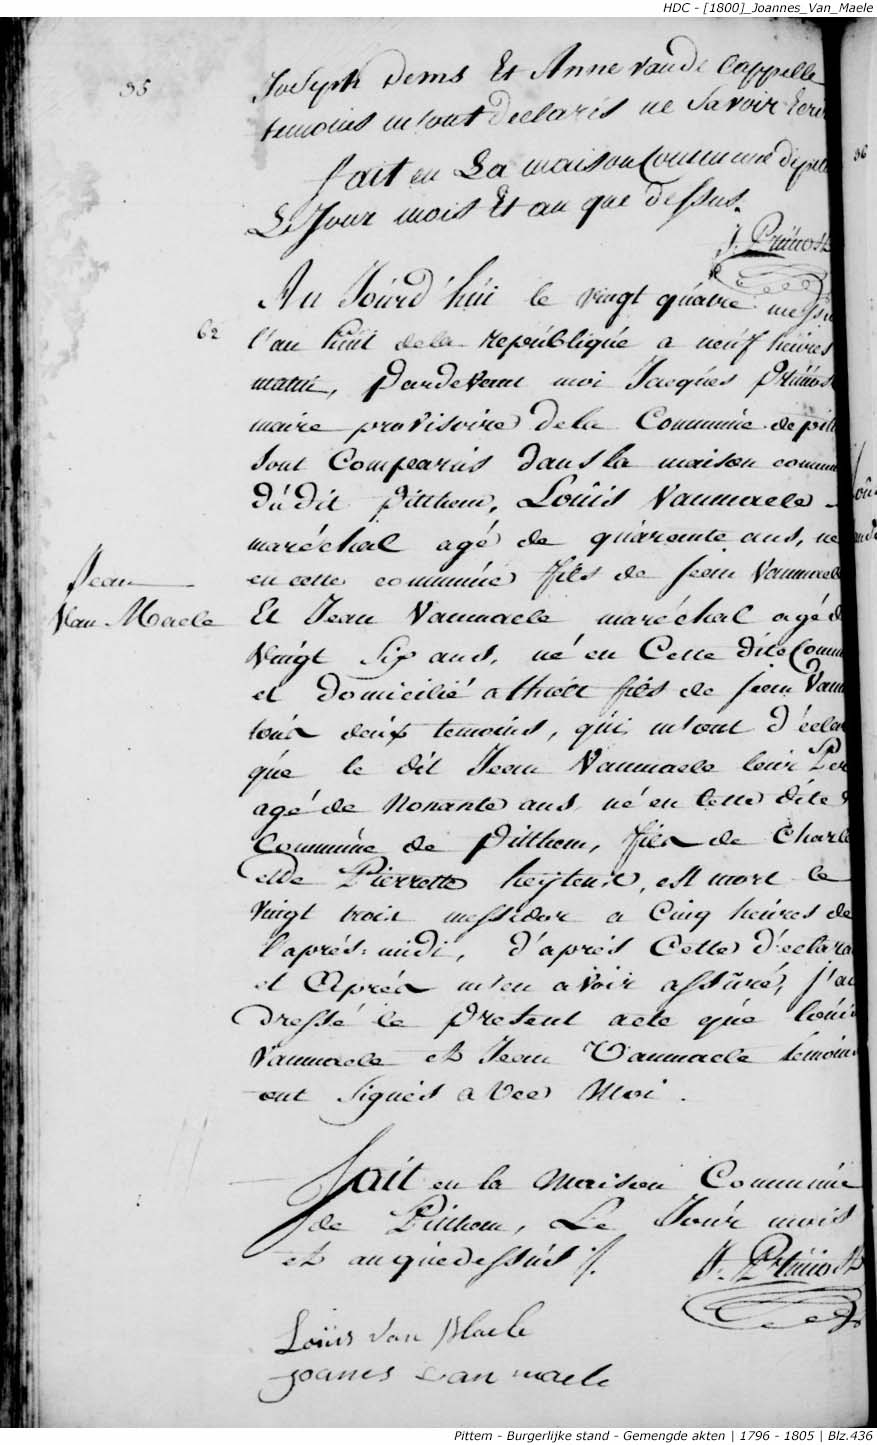 HDC - [1800]_Joannes_Van_Maele
35
Joseph dems Et Anne vande Cappelle
temoins mont declarés ne Savoir Ecri
fait en La maison Commune de pitt
Le Jour mois Et an que dessus.
J. Prünost
36
Au Jourd'hüi le vingt quatre messi
62
l'an huit de la republique a neuf heüres
matin, Pardevant moi Jacques Prünos
maire provisoire de la Commune de pitt
sont Comparus dans la maison commun
dudit Pitthem, Loüis Vanmaele
maréchal agé de quarante ans, né
en cette commune fils de jean Vanmaele
Jean
Van Maele
Et Jean Vanmaele maréchal agé de
vingt Six ans, né en Cette dite Commu
et domicilié a thielt fils de jean Vanm
tous deux temoins, qui mont déclar
que le dit Jean Vanmaele leur Per
agé de Nonante ans né en Cette dite
Commune de Pitthem, fils de Charle
et de Pierrette, est mort le
vingt trois messidor a Cinq heures de
l'aprés-midi, d'aprés Cette déclara
et Aprés m'en avoir assüré, j'ai
dressé le Present acte que loüis
Vanmaele et Jean Vanmaele temoins
ont Signés avec Moi.
fait en la Maison Commune
de Pitthem, Le Jour mois
et an que dessus
J. Prünost
Loüis van Maele
joannes van maele
Pittem - Burgerlijke stand - Gemengde akten | 1796 - 1805 | Blz.436